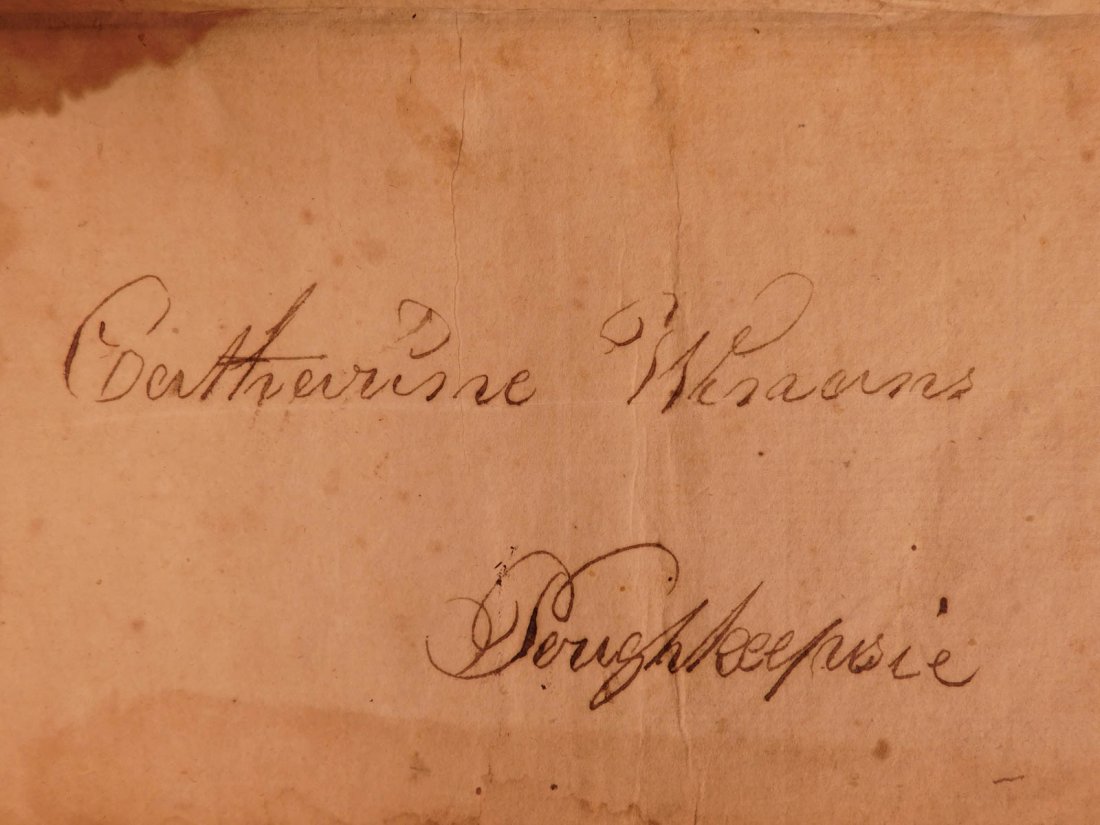 Catherine Winans
Poughkeepsie